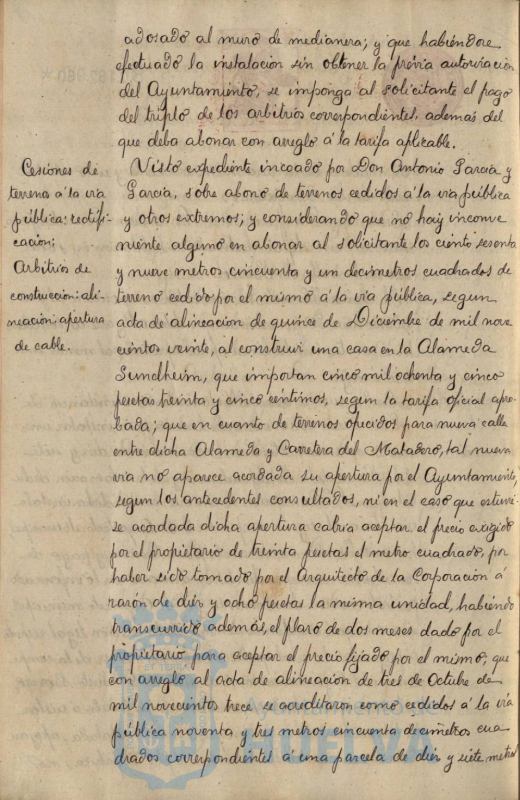 adosado al muro de medianera; y que habiéndose
efectuado la instalación sin obtener la prévia autorización
del Ayuntamiento, se imponga al solicitante el pago
del triplo de los arbitrios correspondientes, además del
que deba abonar con arreglo á la tarifa aplicable.
Cesiones de
terreno á la vía
pública: rectifi-
cación;
Arbitrios de
construcción: ali-
neación: apertura
de calle.
Visto expediente incoado por Don Antonio García y
García, sobre abono de terrenos cedidos á la vía pública
y otros extremos; y considerando que no hay inconve
niente alguno en abonar al solicitante los ciento sesenta
y nueve metros cincuenta y un decímetros cuadrados de
terreno cedido por el mismo á la vía pública, segun
acta de alineacion de quince de Diciembre de mil nove
cientos veinte, al construir una casa en la Alameda
Sundheim, que importan cinco mil ochenta y cinco
pesetas treinta y cinco céntimos, segun la tarifa oficial apro-
bada; que en cuanto de terrenos ofrecidos para nueva calle
entre dicha Alameda y Carretera del Matadero, tal nueva
vía no aparece acordada su apertura por el Ayuntamiento,
segun los antecedentes consultados, ni en el caso que estuvie
se acordada dicha apertura cabría aceptar el precio exigido
por el propietario de treinta pesetas el metro cuadrado, por
haber sido tomado por el Arquitecto de la Corporación á
razón de diéz y ocho pesetas la misma unidad, habiendo
transcurrido además, el plazo de dos meses dado por el
propietario para aceptar el precio fijado por el mismo; que
con arreglo al acta de alineación de tres de Octubre de
mil novecientos trece se acreditaron como cedidos á la vía
pública noventa y tres metros cincuenta decímetros cua
drados correspondientes á una parcela de diéz y siete metros
HUELVA